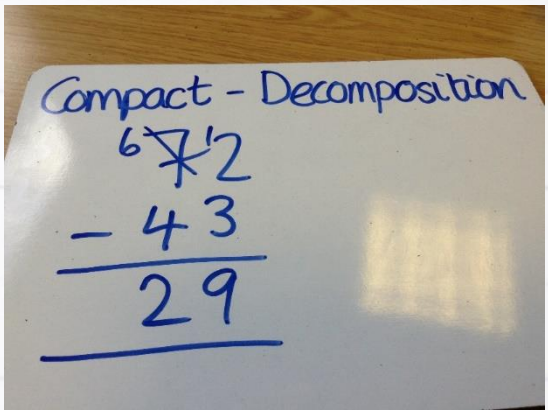 Compact - Decomposition
6 7 12
- 43
29